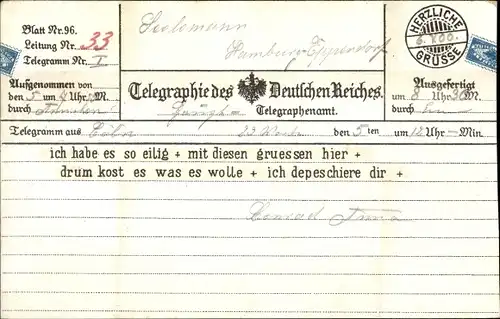 Blatt Nr. 96.
Leitung Nr. 33
Telegramm Nr. I
Hamburg Eppendorf
HERZLICHE
GRÜSSE
Aufgenommen von
den 5 um Uhr M.
durch
Telegraphie des Deutschen Reiches.
Telegraphenamt.
Ausgefertigt
um 8 Uhr 30 M.
durch
Telegramm aus 22 Worte den 5ten um 12 Uhr — Min.
ich habe es so eilig + mit diesen gruessen hier +
drum kost es was es wolle + ich depeschiere dir +
Conrad